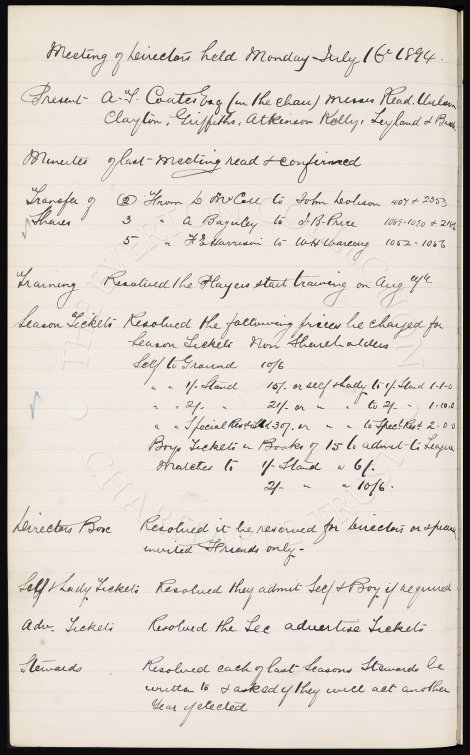 Meeting of Directors held Monday July 16th 1894.
Present - A. T. Coates Esq (in the chair) Messrs Read,
Clayton, Griffiths, Atkinson Kelly, Leyland &
Minutes of last meeting read & confirmed
Transfer of Shares (2) From D McColl to John Dobson 404 & 2353
3 " A Baguley to J. B. Price 1089-1090 &
5 " H E Harrison to W H Wareing 1052-1056
Training Resolved the Players start training on Aug
Season Tickets Resolved the following prices be charged for
Season Tickets Non Shareholders
Self to Ground 10/6
" " 1/- Stand 15/- or self & Lady to 1/- Stand 1-1-0
" " 2/- " 21/- or " " to 2/- " 1-10-0
" " Special Res Std 30/- or " " to Spec Res 2-0-0
Boys Tickets in Books of 15 to admit to League
Matches to 1/- Stand " 6/-
2/- " " 10/6.
Directors Box Resolved it be reserved for Directors or
invited Friends only -
Self & Lady Tickets Resolved they admit Self & Boy if required
Adv. Tickets Resolved the Sec advertise Tickets
Stewards Resolved each of last Seasons Stewards be
written to & asked if they will act another
Year if elected
THE EVERTON COLLECTION
CHARITABLE TRUST